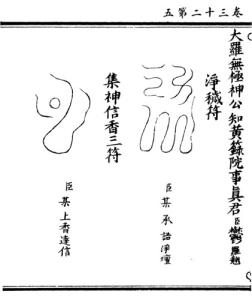 卷三十二第五
大羅無極神公知黃籙院事眞君臣鬱羅翹
淨穢符
臣某承誥淨壇
集神信香三符
臣某上香達信